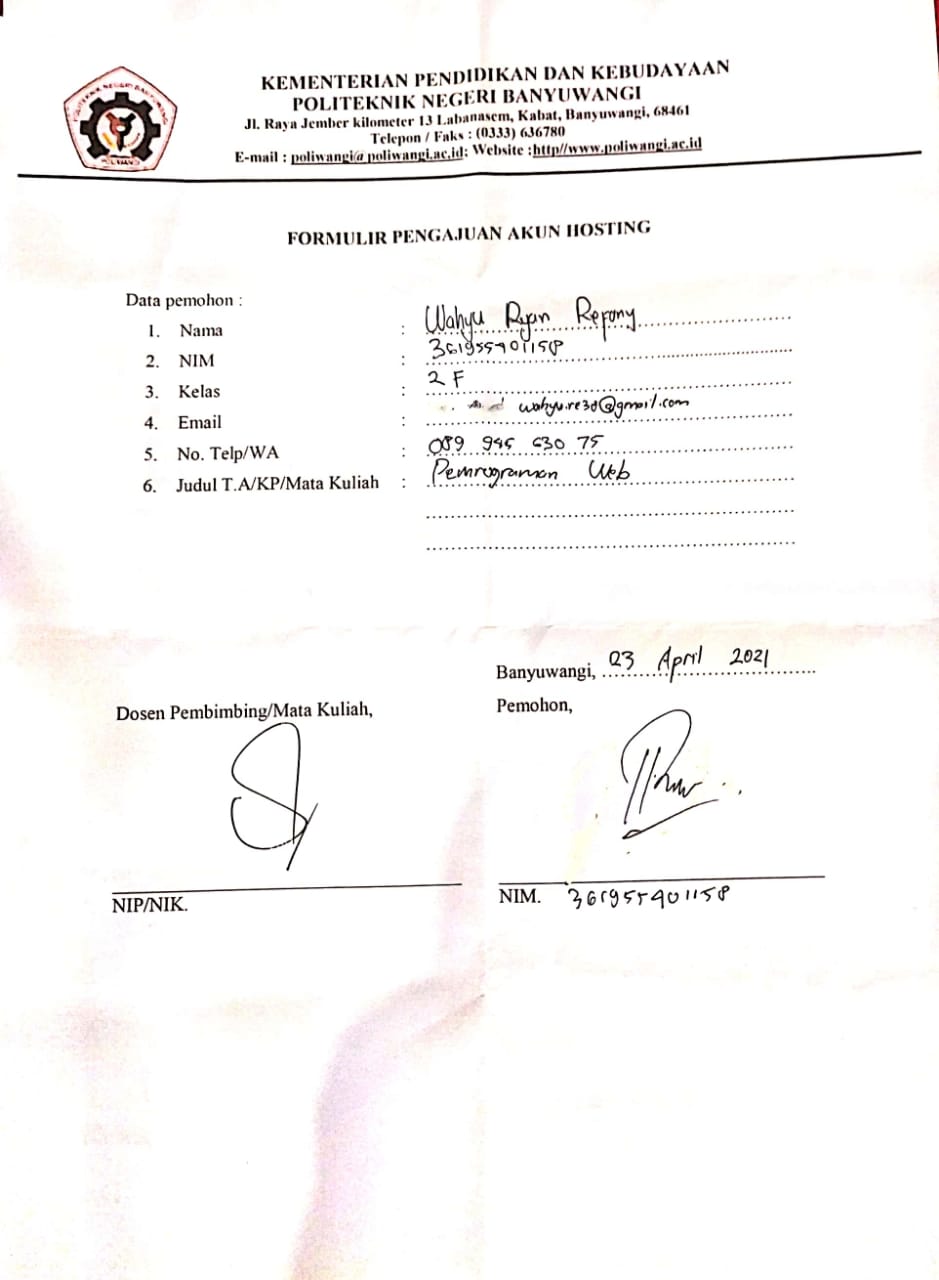 POLITEKNIK NEGERI BANYUWANGI
POLIWANGI
KEMENTERIAN PENDIDIKAN DAN KEBUDAYAAN
POLITEKNIK NEGERI BANYUWANGI
Jl. Raya Jember kilometer 13 Labanasem, Kabat, Banyuwangi, 68461
Telepon / Faks : (0333) 636780
E-mail : poliwangi@poliwangi.ac.id; Website :http//www.poliwangi.ac.id
FORMULIR PENGAJUAN AKUN HOSTING
Data pemohon :
1. Nama : Wahyu Ryan Refony
2. NIM : 361955401158
3. Kelas : 2 F
4. Email : wahyu.re30@gmail.com
5. No. Telp/WA : 089 945 630 75
6. Judul T.A/KP/Mata Kuliah : Pemrograman Web
Banyuwangi, 23 April 2021
Dosen Pembimbing/Mata Kuliah,
Pemohon,
NIP/NIK.
NIM. 361955401158